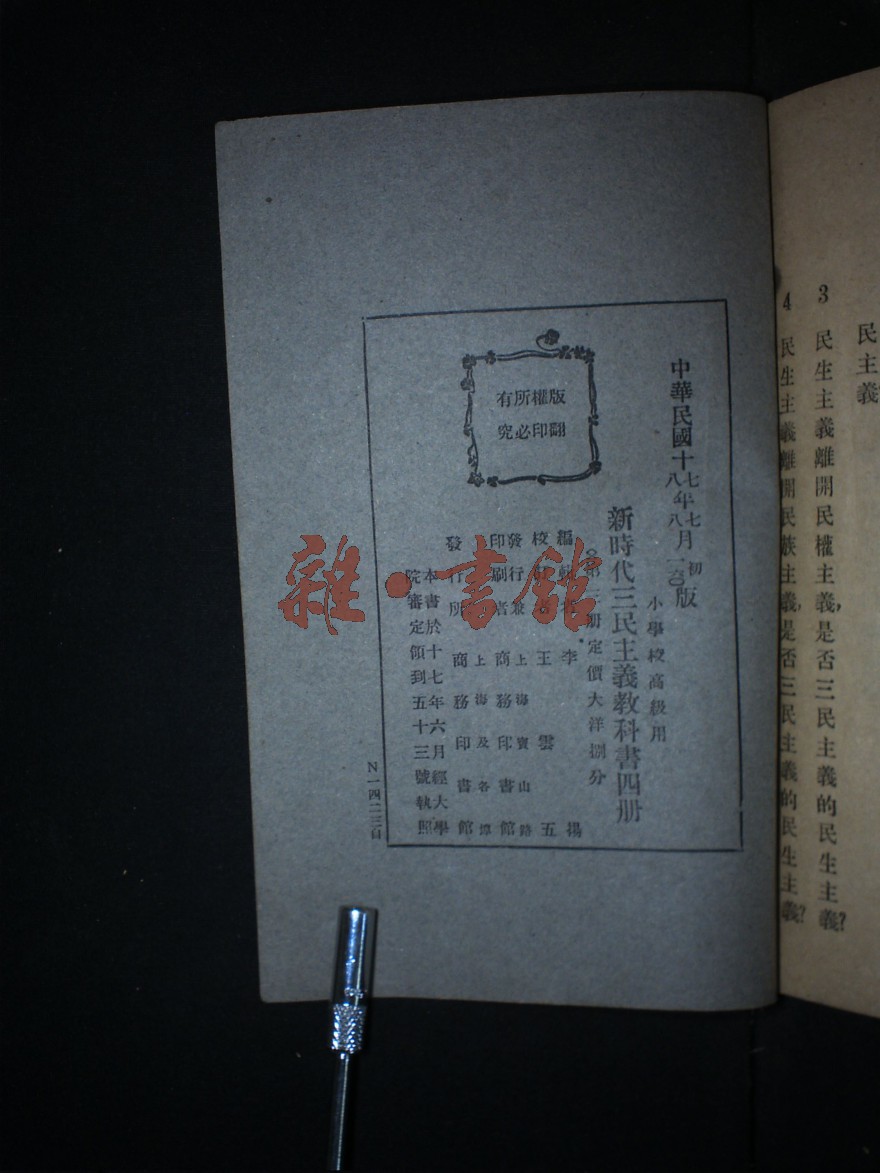 民主義
3 民生主義離開民權主義,是否三民主義的民生主義?
4 民生主義離開民族主義,是否三民主義的民生主義?
中華民國十七年七月初版
八 八 一六〇
小學校高級用
新時代三民主義教科書四册
册定價大洋捌分
編 李 揚
校 王雲五
發行兼 上海寶山路
印刷者 商務印書館
上海及各埠
發行所 商務印書館
本書於十七年六月經大學
院審定領到五十三號執照
版權所有
翻印必究
N一四二三自
雜·書館